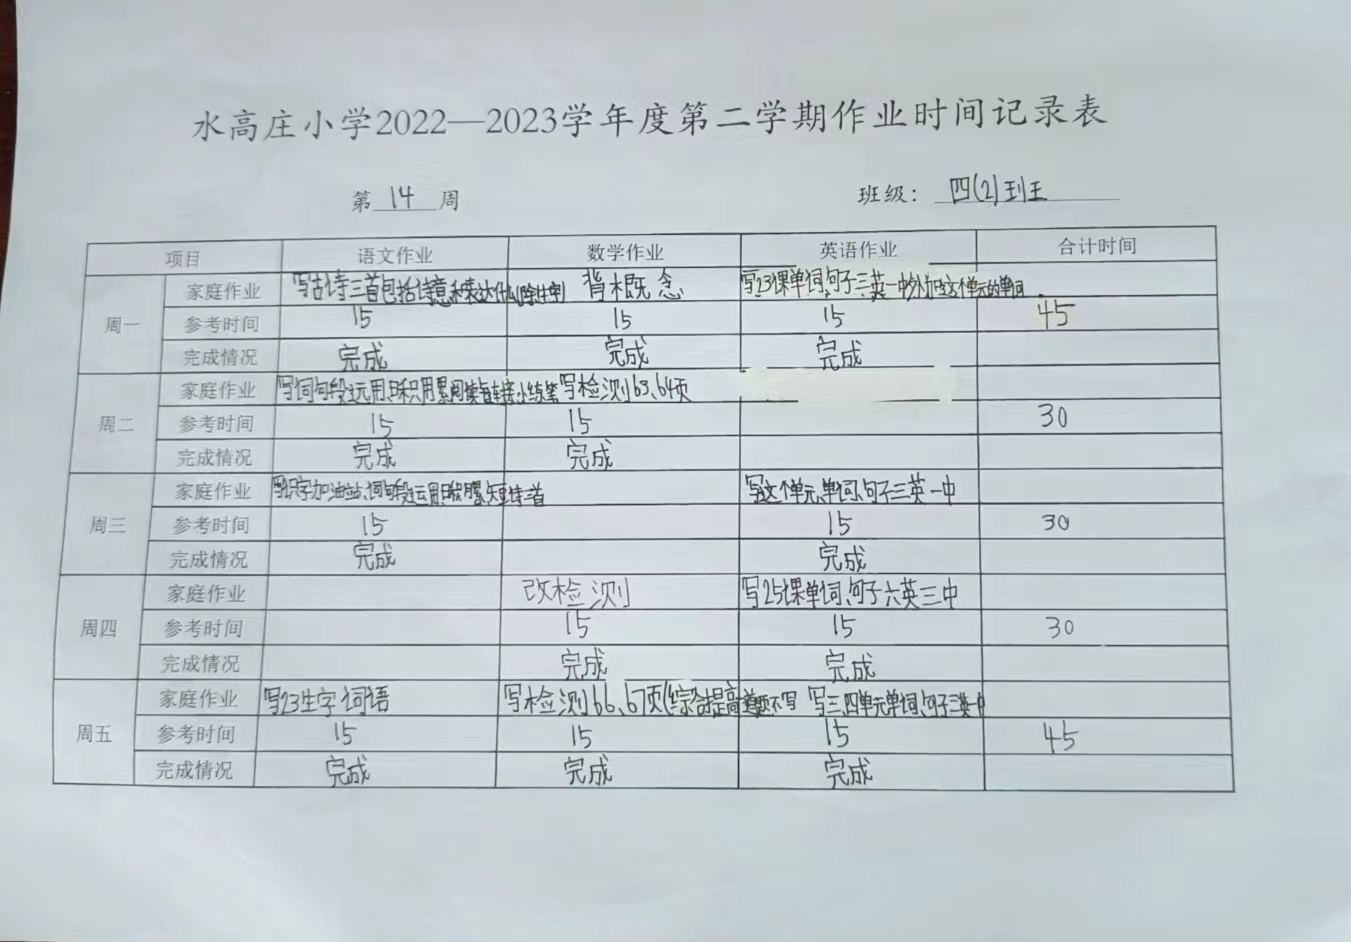 水高庄小学2022—2023学年度第二学期作业时间记录表
第 14 周 班级：四(2)班
项目 语文作业 数学作业 英语作业 合计时间
周一
家庭作业 写古诗三首包括诗意和表达什么 背概念 写23课单词、句子三英一中
参考时间 15 15 15 45
完成情况 完成 完成 完成
周二
家庭作业 写词句段运用、日积月累 写检测63、64页
参考时间 15 15 30
完成情况 完成 完成
周三
家庭作业 写识字加油站、词句段运用 写这个单元单词、句子三英一中
参考时间 15 15 30
完成情况 完成 完成
周四
家庭作业 改检测 写25课单词、句子六英三中
参考时间 15 15 30
完成情况 完成 完成
周五
家庭作业 写23生字词语 写检测66、67页(综合提高 不写 写三、四单元单词、句子三英一中
参考时间 15 15 15 45
完成情况 完成 完成 完成